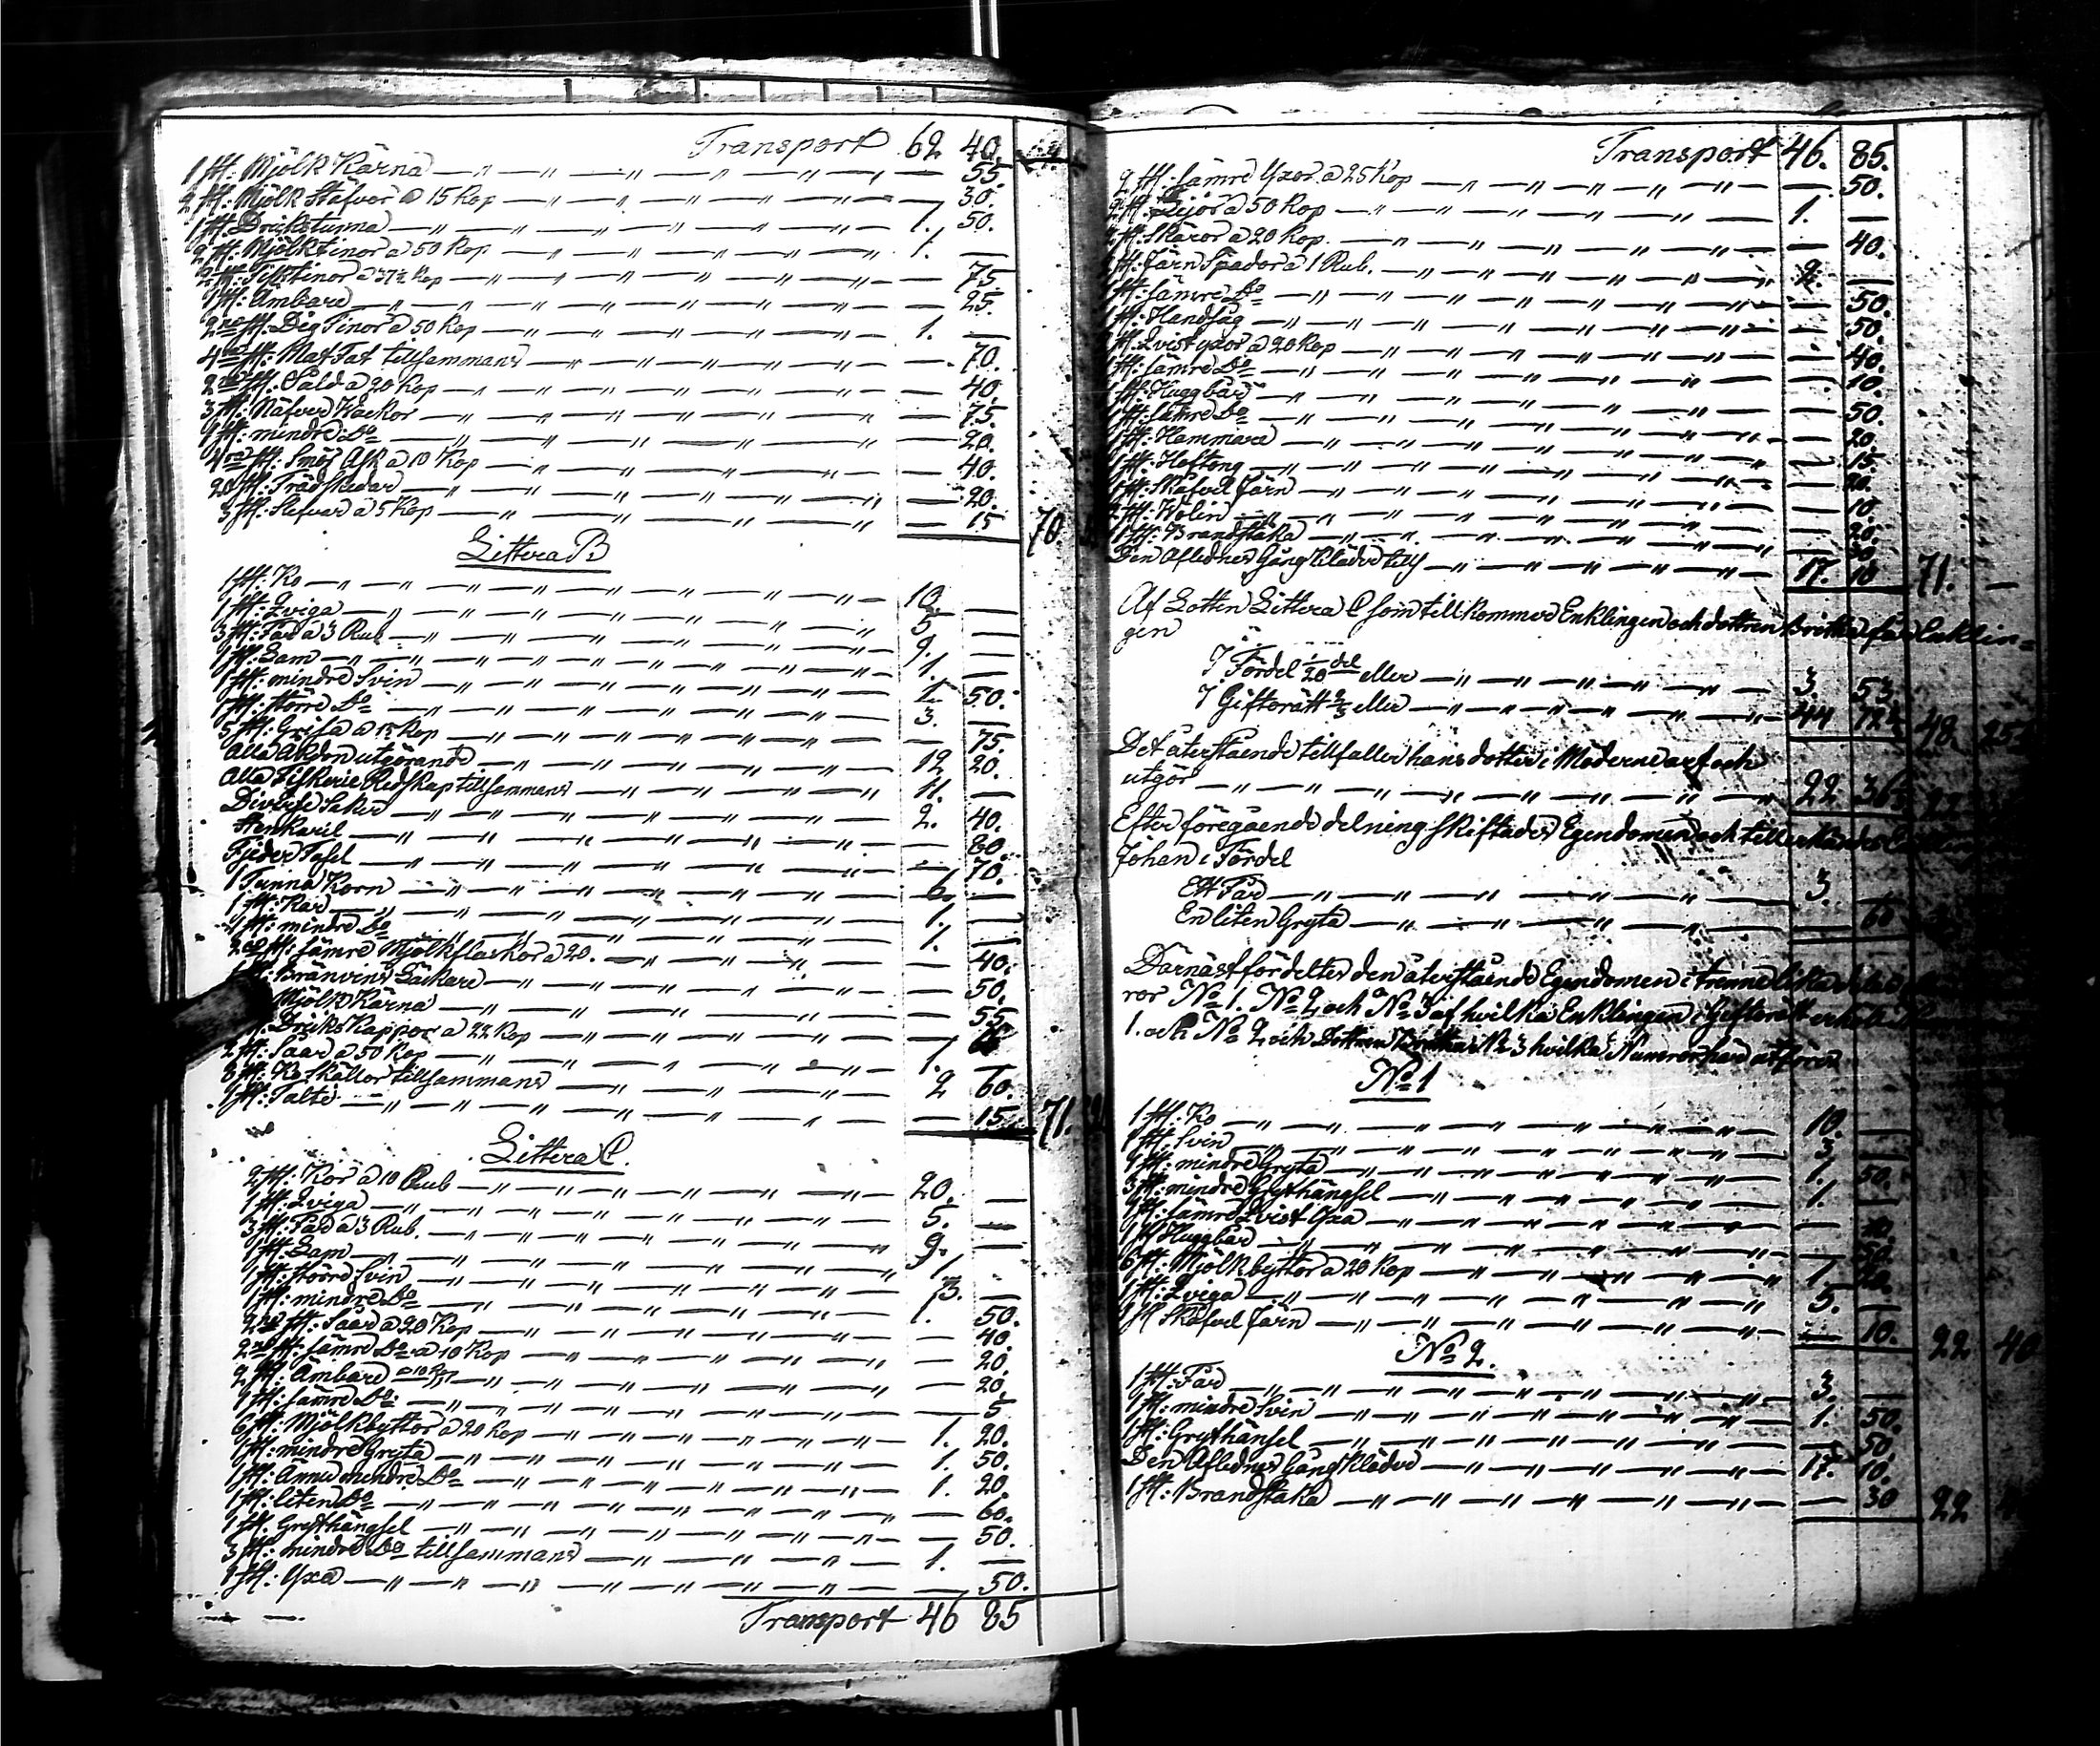 Transport 62 40.
1 st: Mjölk Kärna — 55
2 st: Mjölk Stäfvor a 15 kop — 30.
1 st. Dricktunna — 1. 50.
2 st. Mjölktinor a 50 kop. — 1. —
2 st. a 37½ kop — 75.
1 st: Ämbare — 25.
2ne st: Deg Tinor a 50 kop — 1. —
4ra st: Mat Fat tillsammans — 70.
2ne st. Såld a 20 kop — 40.
3 st. Näfver Kackor — 75.
1 st: mindre Do — 20.
4ra st: Smör Ask a 10 Kop — 40.
20 st: Trädskedar — 20.
3 st: Slefvar a 5 Kop — 15 70.
Littera B
1 st: Ko — 10. —
1 st: Qviga — 5. —
3 st: Får a 3 Rub — 9. —
1 st: Lam — 1. —
1 st: mindre Svin — 1. 50.
1 st: större Do — 3. —
5 st: Grisa a 15 kop — 75.
Alla Åkdon utgörande — 12 20.
Alla Fiskerie Redskap tillsammans — 11. —
Diverse Saker — 2. 40.
— 60.
Fjeder — 70.
1 Tunna Korn — 6. —
1 st: Kar — 1. —
1 st: mindre Do — 1. —
2ne st: sämre Mjölkflaskor a 20. — 40.
Bränvins Läckare — 50.
Mjölk Kärna — 55.
Dricks Kappor a 22 kop —
2 st: Såar a 50 kop — 1. —
st: Ko Skällor tillsammans — 2 60.
1 st: Salte — 15. 71.
Littera C.
2 st: Kor a 10 Rub — 20. —
1 st: Qviga — 5. —
3 st: Får a 3 Rub. — 9. —
1 st: Lam — 1.
1 st: större Svin — 3. —
1 st: mindre Do — 1. 50.
2ne st: Såar a 20 Kop — 40.
2ne st: sämre Do a 10 Kop — 20.
2 st: Ämbare a 10 Kop — 20.
1 st: sämre Do. — 5
6 st: Mjölkbyttor a 20 kop — 1. 20.
1 st: mindre Gryta — 1. 50.
1 st: Ännu mindre Do — 1. 20.
1 st: liten Do — 60.
1 st: Grythängsel — 50.
3 st: mindre Do tillsammans — 1. —
1 st: Yxa — 50.
Transport 46 85
Transport 46. 85.
2 st: sämre Yxor a 25 Kop — 50.
2 st: Lijor a 50 kop — 1. —
2 st. Skäror a 20 kop. — 40.
st. Järn Spador a 1 Rub. — 2. —
1 st: sämre Do — 50.
1 st: Handsåg — 50.
st: Qvist yxor a 20 kop — 40.
1 st: sämre Do — 10.
1 st: Huggbår — 50.
1 st: sämre Do — 20.
1 st: Hammare — 15.
1 st: Hoftong — 20.
1 st: Skafvel Järn — 10.
st: Wolin — 20.
1 st: Brandstaka — 30.
Den Aflednes Gång Kläder till — 17. 10 71. —
Af Lotten Littera C som tillkommer Enklingen och dottren Britha får Enklin=
gen
I Fördel 1/20 del eller — 3. 53
I Giftorätt 2/3 eller — 44 48. 25
Det återstående tillfaller hans dotter i Möderne arf och
utgör — 22 36
Efter föregående delning skiftades Egendomen och tillerkändes
Johan i Fördel
Ett Får — 3.
En liten Gryta — 60
Därnäst fördeltes den återstående Egendomen i trenne lika
ror No 1. No 2. och No 3 af hvilka Enklingen i Giftorätt
1. och No 2. och Dottren Britha No 3 hvilka Numror här
No 1
1 st: Ko — 10. —
1 st. Svin — 3. —
1 st: mindre Gryta — 1. 50.
3 st: mindre Grythängsel — 1. —
1 st: sämre Qvist Yxa — 10.
1 st Huggbår — 50.
6 st: Mjölkbyttor a 20 kop — 1. 20.
1 st: Qviga — 5. —
1 st Skafvel Järn — 10. 22 40
No 2.
1 st: Får — 3. —
1 st: mindre Svin — 1. 50.
1 st: Grythänsel — 50.
Den Aflednes Gång Kläder — 17. 10.
1 st: Brandstaka — 30 22